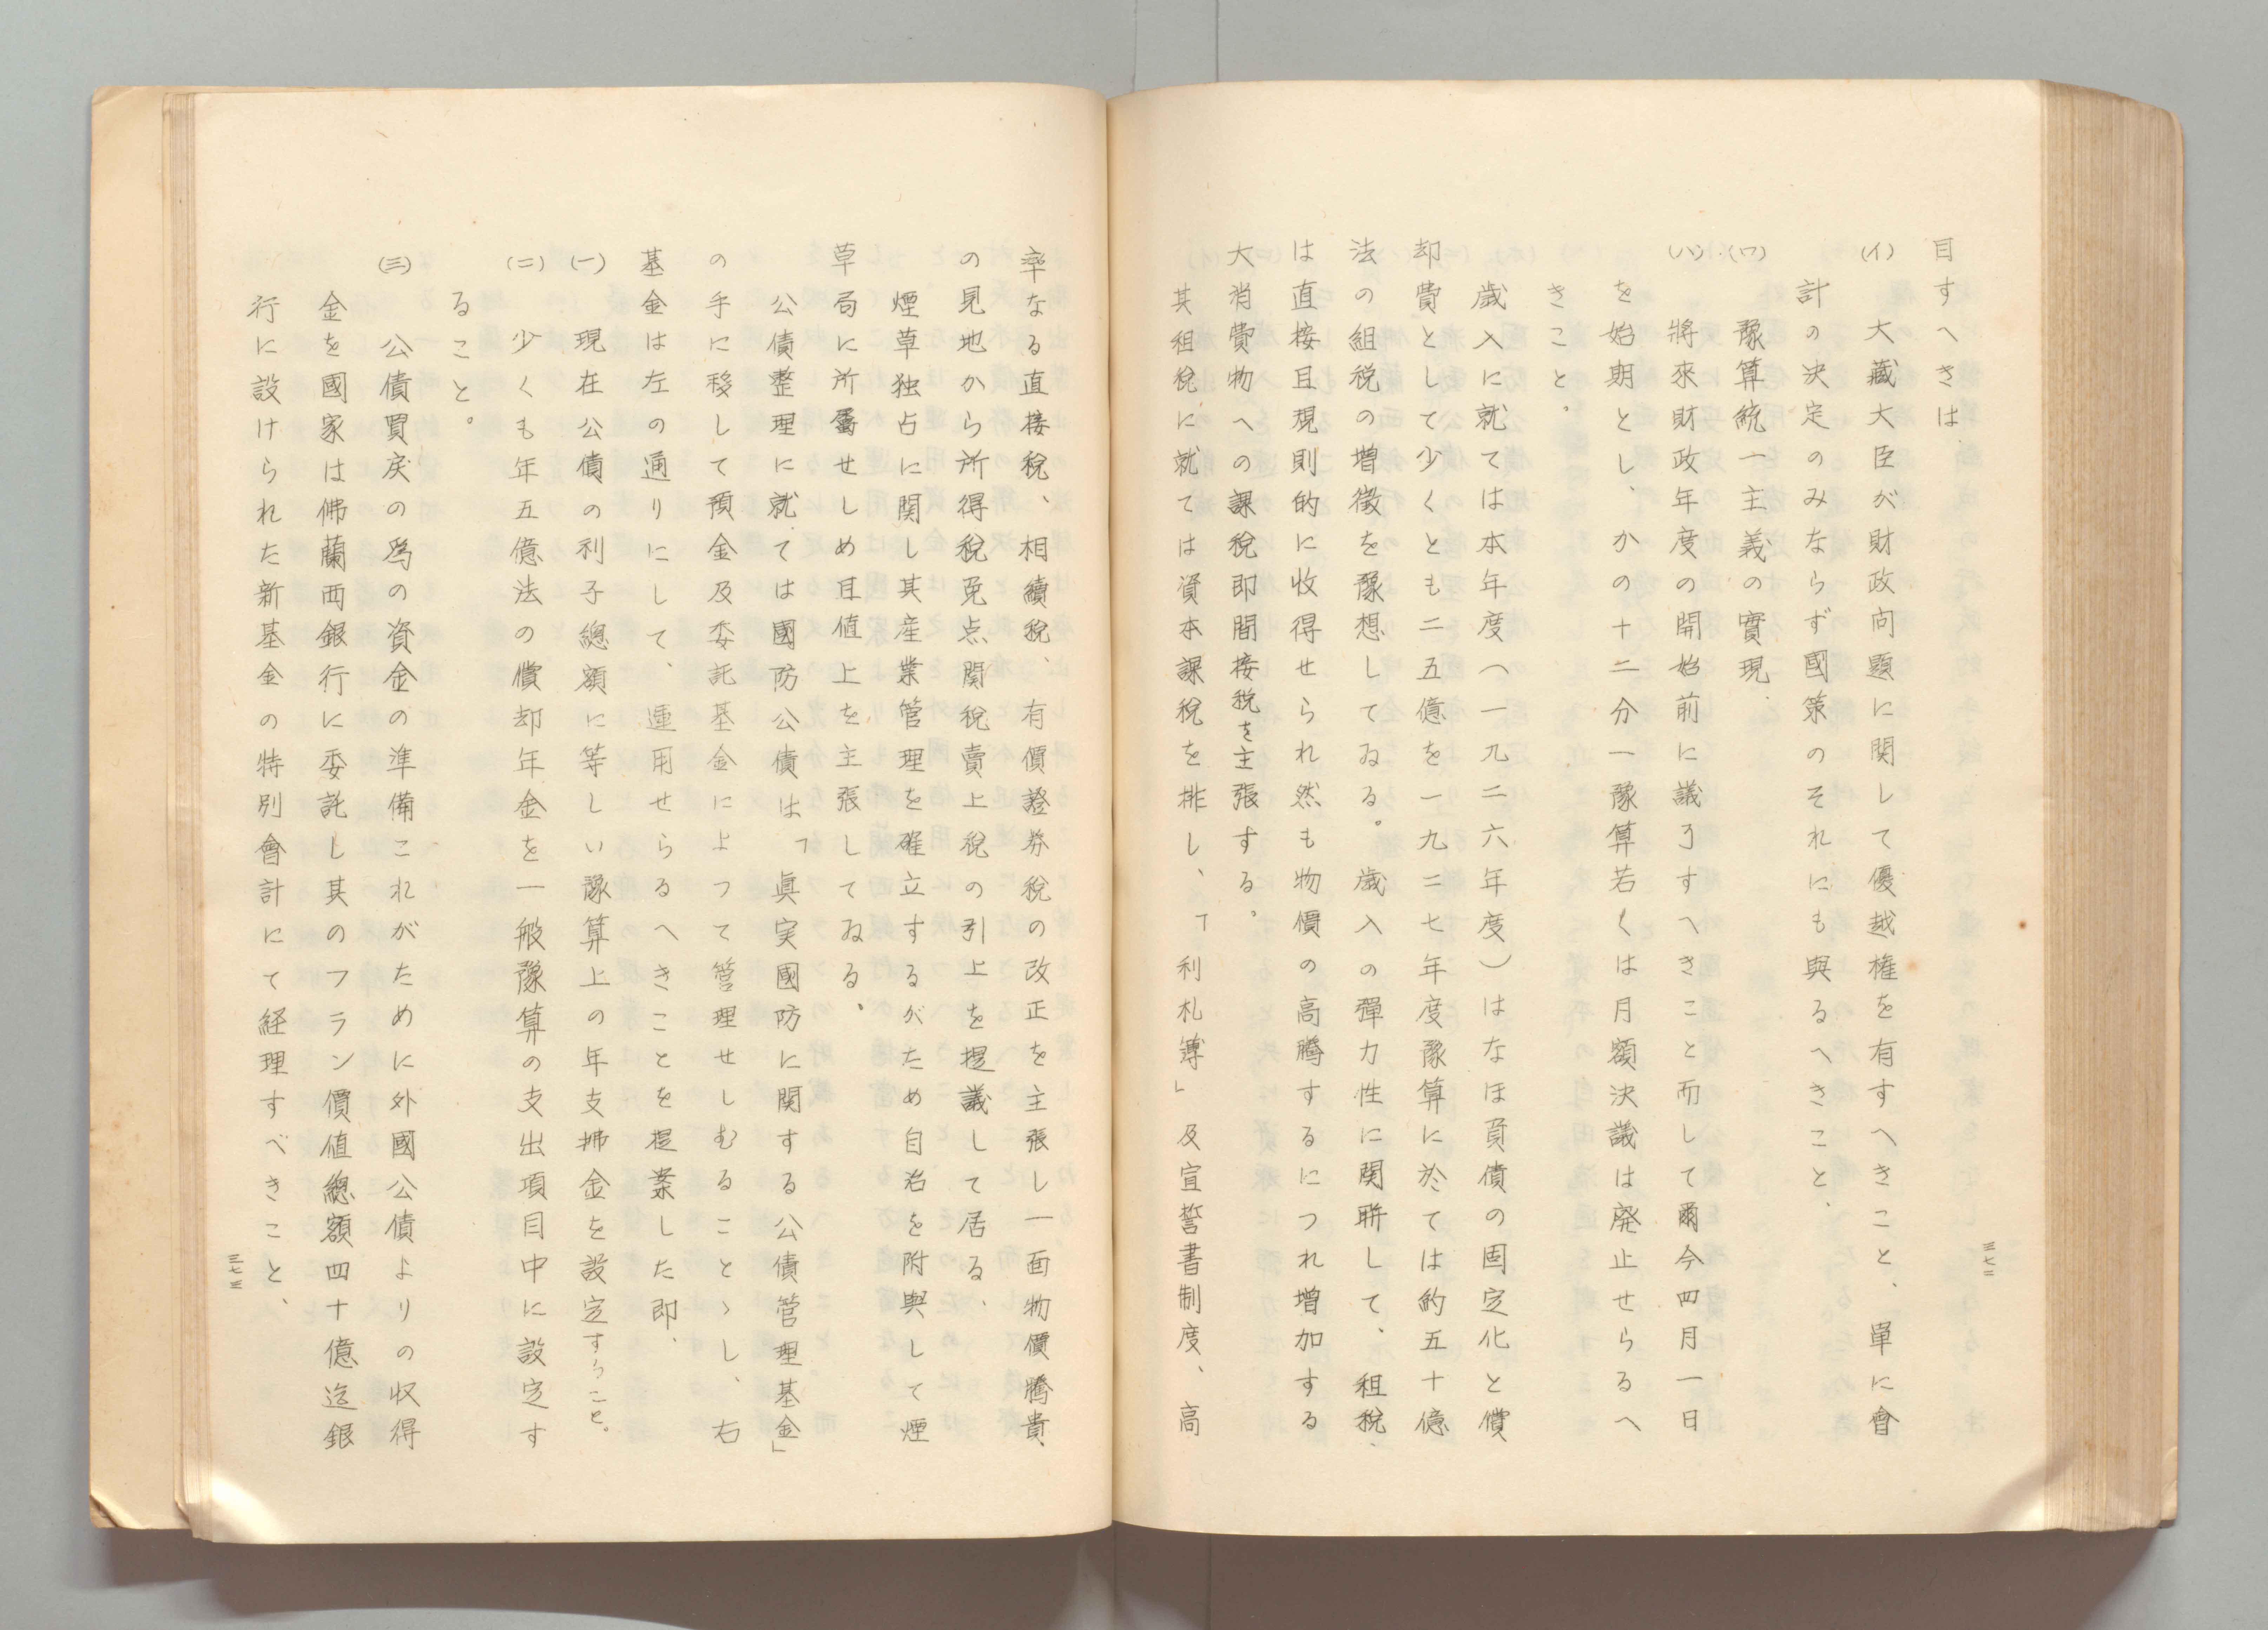 目すへきは、
(イ) 大藏大臣が財政問題に関して優越権を有すへきこと、單に會
計の決定のみならず國策のそれにも與るへきこと、
(ロ) 豫算統一主義の實現.
(ハ) 將來財政年度の開始前に議了すへきこと而して爾今四月一日
を始期とし、かの十二分一豫算若くは月額決議は廃止せらるへ
きこと。
歳入に就ては本年度(一九二六年度)はなほ負債の固定化と償
却費として少くとも二五億を一九二七年度豫算に於ては約五十億
法の組税の増徴を豫想してゐる。歳入の彈力性に関聨して、租税、
は直接且規則的に收得せられ然も物價の高騰するにつれ増加する
大消費物への課税即間接税を主張する。
其租税に就ては資本課税を排し、「利札簿」及宣誓書制度、高
三七二
率なる直接税、相續税、有價證券税の改正を主張し一面物價騰貴
の見地から所得税免点関税賣上税の引上を提議して居る、
煙草独占に関し其産業管理を確立するがため自治を附與して煙
草局に所屬せしめ且値上を主張してゐる、
公債整理に就ては國防公債は、「眞実國防に関する公債管理基金」
の手に移して預金及委託基金によつて管理せしむることゝし、右
基金は左の通りにして、運用せらるへきことを提案した即、
(一) 現在公債の利子總額に等しい豫算上の年支拂金を設定すること。
(二) 少くも年五億法の償却年金を一般豫算の支出項目中に設定す
ること。
(三) 公債買戻の爲の資金の準備これがために外國公債よりの収得
金を國家は佛蘭西銀行に委託し其のフラン價値總額四十億迄銀
行に設けられた新基金の特別會計にて経理すべきこと、
三七三